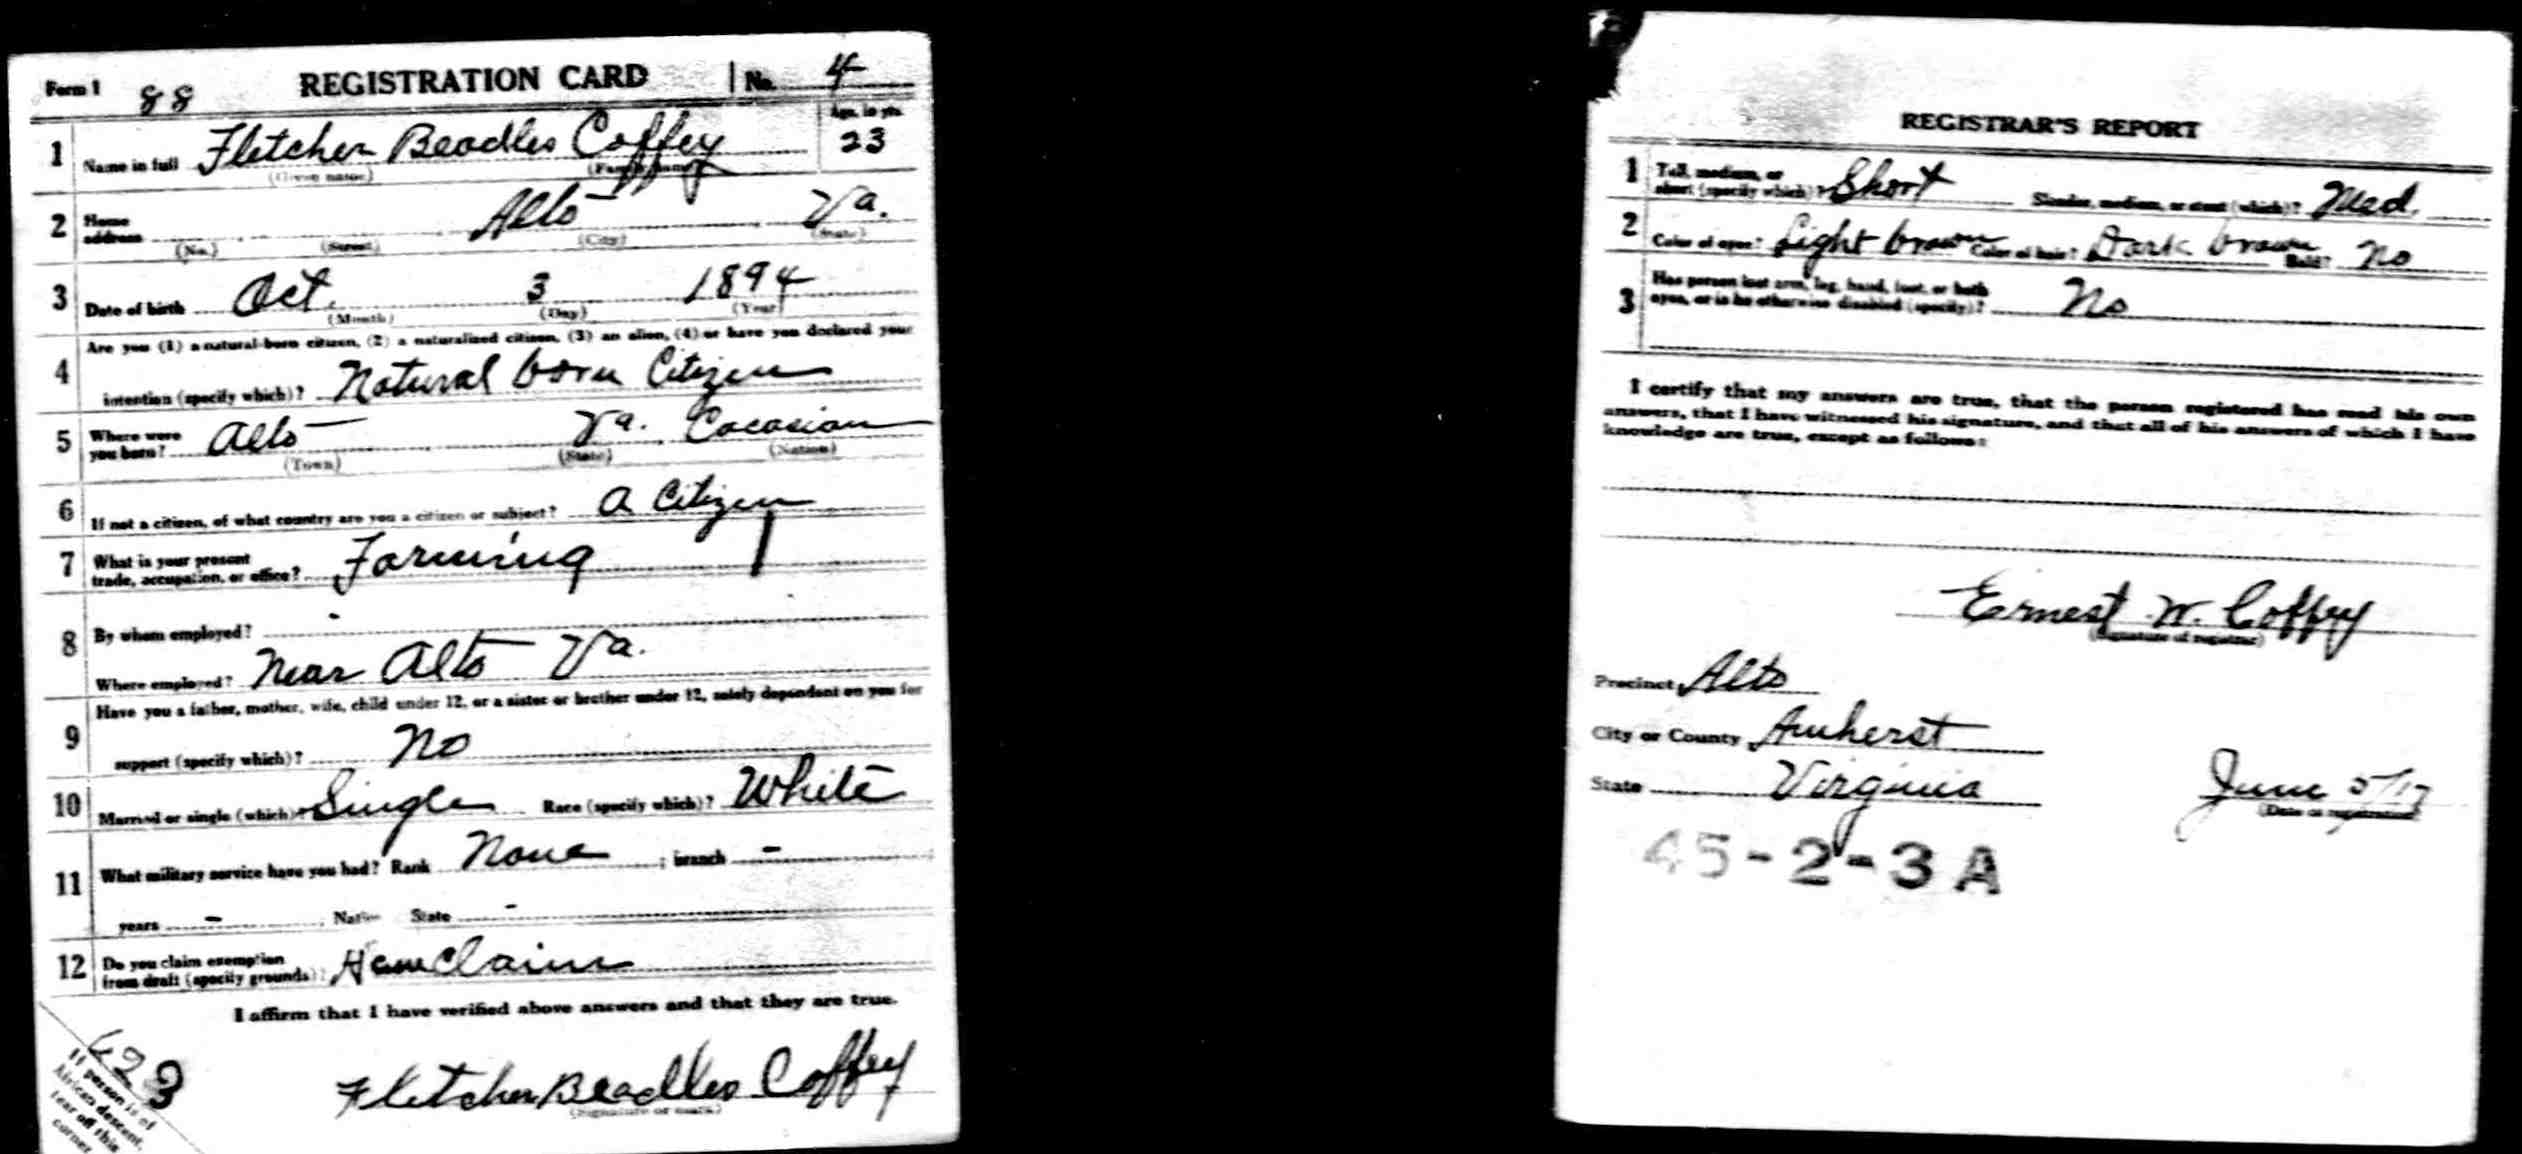 Form 1 88 REGISTRATION CARD No. 4
Age, in yrs.
1 Name in full Fletcher Beadles Coffey 23
(Given name) (Family name)
2 Home address Alto Va.
(No.) (Street) (City) (State)
3 Date of birth Oct. 3 1894
(Month) (Day) (Year)
Are you (1) a natural-born citizen, (2) a naturalized citizen, (3) an alien, (4) or have you declared your
4 intention (specify which)? Natural born Citizen
5 Where were you born? Alto Va. Cocasian
(Town) (State) (Nation)
6 If not a citizen, of what country are you a citizen or subject? A Citizen
7 What is your present trade, occupation, or office? Farming 1
8 By whom employed? -
Where employed? Near Alto Va.
Have you a father, mother, wife, child under 12, or a sister or brother under 12, solely dependent on you for
9 support (specify which)? No
10 Married or single (which)? Single Race (specify which)? White
11 What military service have you had? Rank None ; branch -
years - ; Nation State -
12 Do you claim exemption from draft (specify grounds)? Claim
I affirm that I have verified above answers and that they are true.
Fletcher Beadles Coffey
(Signature or mark)
If person is of
African descent,
tear off this
corner
REGISTRAR'S REPORT
1 Tall, medium, or short (specify which)? Short Slender, medium, or stout (which)? Med.
2 Color of eyes? Light brown Color of hair? Dark brown Bald? No
3 Has person lost arm, leg, hand, foot, or both eyes, or is he otherwise disabled (specify)? No
I certify that my answers are true, that the person registered has read his own
answers, that I have witnessed his signature, and that all of his answers of which I have
knowledge are true, except as follows:
Ernest W. Coffey
(Signature of registrar)
Precinct Alto
City or County Amherst
State Virginia June 5/17
(Date of registration)
45-2-3 A